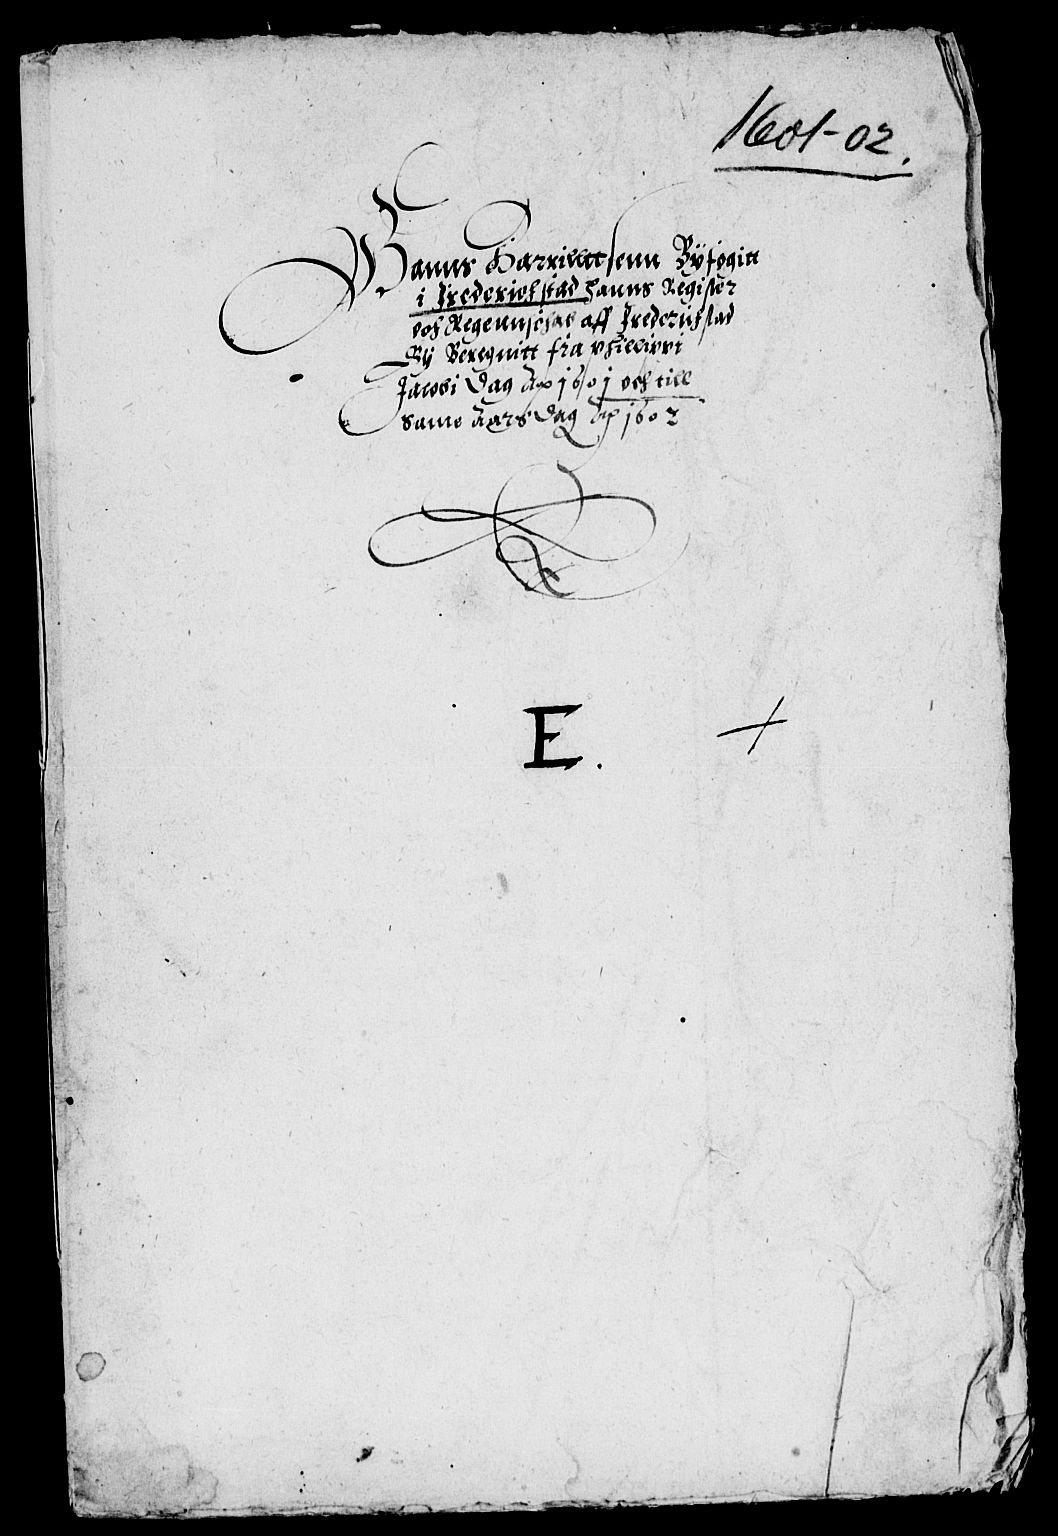 1601-02.
Hanns Harrilldtsenn Byfogitt
i Frederichstad hanns Register
och Regennschab aff Frederichstad
By Beregnitt fra Philippi
Jacobi Dag Ao 1601 och till
same Aars Dag Ao 1602
E.